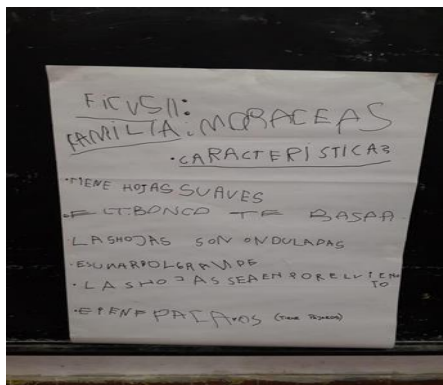 FICUS II:
FAMILIA: MORACEAS
• CARACTERISTICAS
• TIENE HOJAS SUAVES
• ELTBONCO TE BASPA
• LASHOJAS SON ONDULADAS
• ESUNARBOLGRANDE
• LA SHOJAS SEAEN PORELVIENTO
• ETENE PAJAROS (TIENE PAJAROS)